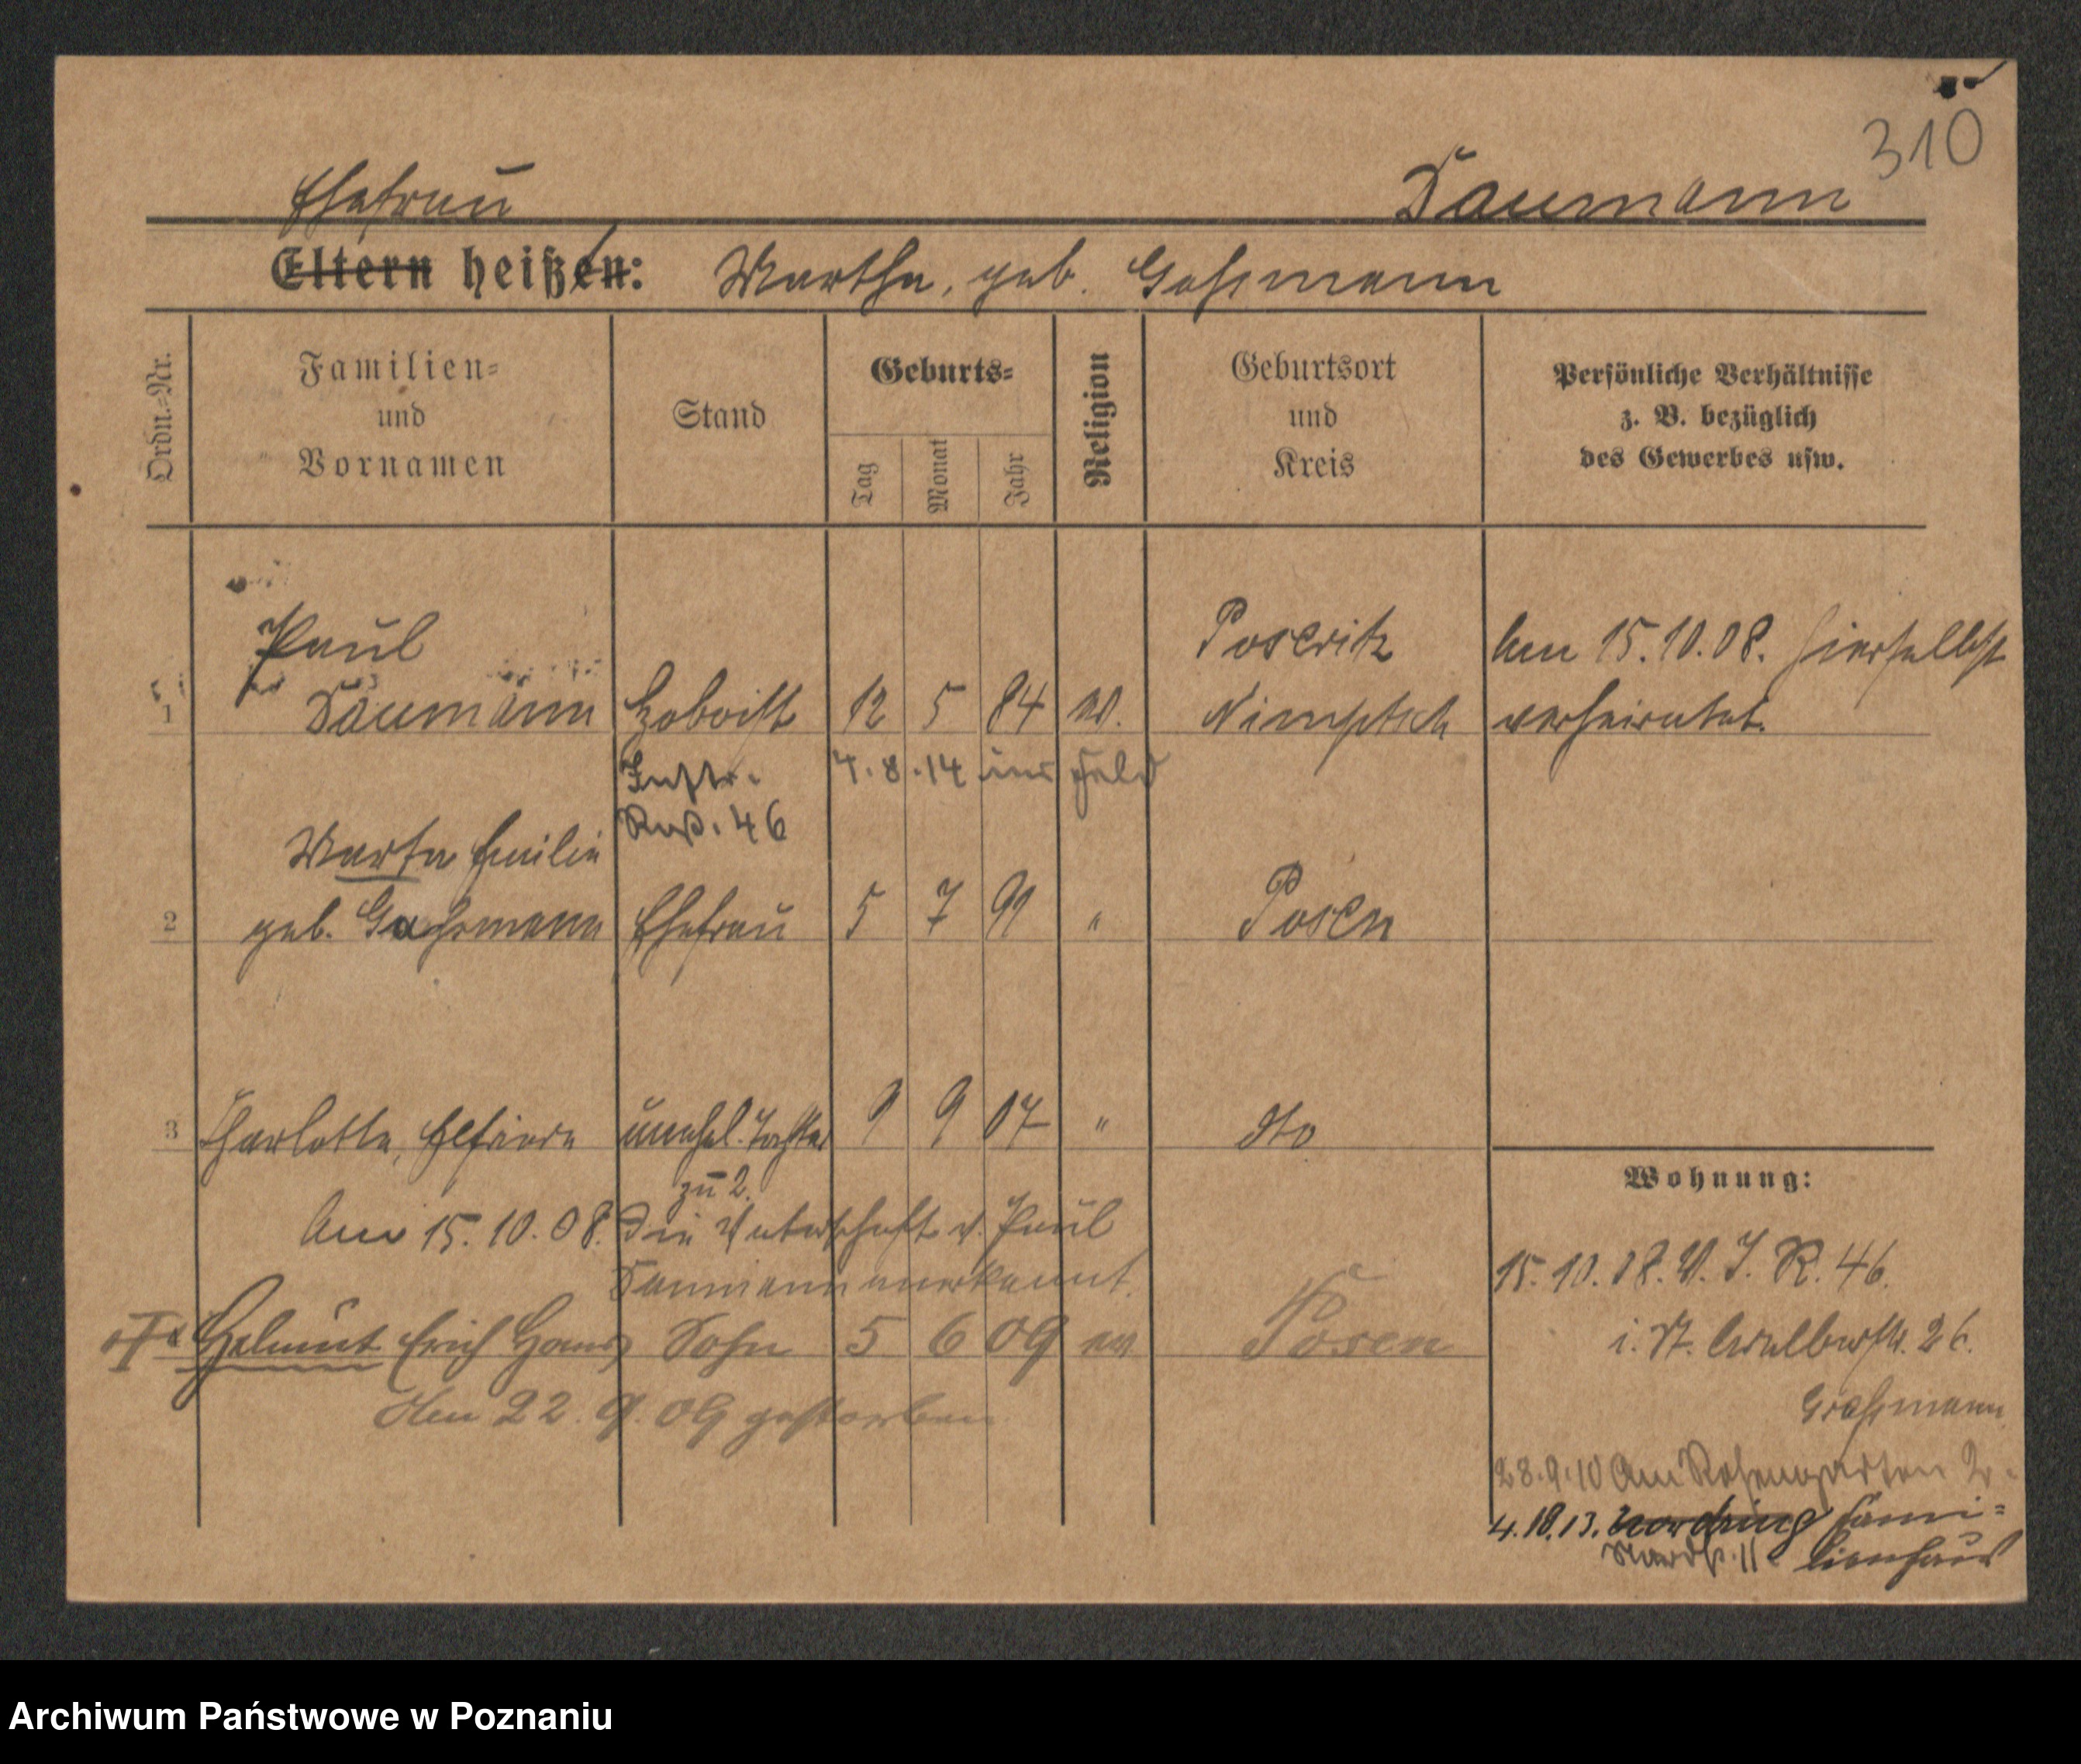 310
Ehefrau Daumann
Eltern heißen: Martha, geb. Gassmann
Ordn.=Nr.
Familien=
und
Vornamen
Stand
Geburts=
Tag
Monat
Jahr
Religion
Geburtsort
und
Kreis
Persönliche Verhältnisse
z. B. bezüglich
des Gewerbes usw.
Paul Poseritz Am 15.10.08. hierselbst
1 Daumann Hoboist 12 5 84 ev. Nimptsch verheiratet.
4.8.14 ins Feld
46
Marta Emilie
2 geb. Ehefrau 5 7 91 " Posen
3 Charlotte, unehel. Tochter 9 9 07 " dto
zu 2.
Am 15.10.08. die Vaterschaft v. Paul
Daumann anerkannt.
Helmut Erich Hans Sohn 5 6 09 ev. Posen
Am 22. 9. 09 gestorben
Wohnung:
15.10.08. I. R. 46.
26.
28.9.10 Am Rosengarten 2
4.10.13. Nordring Fami=
11 lienhaus
Archiwum Państwowe w Poznaniu